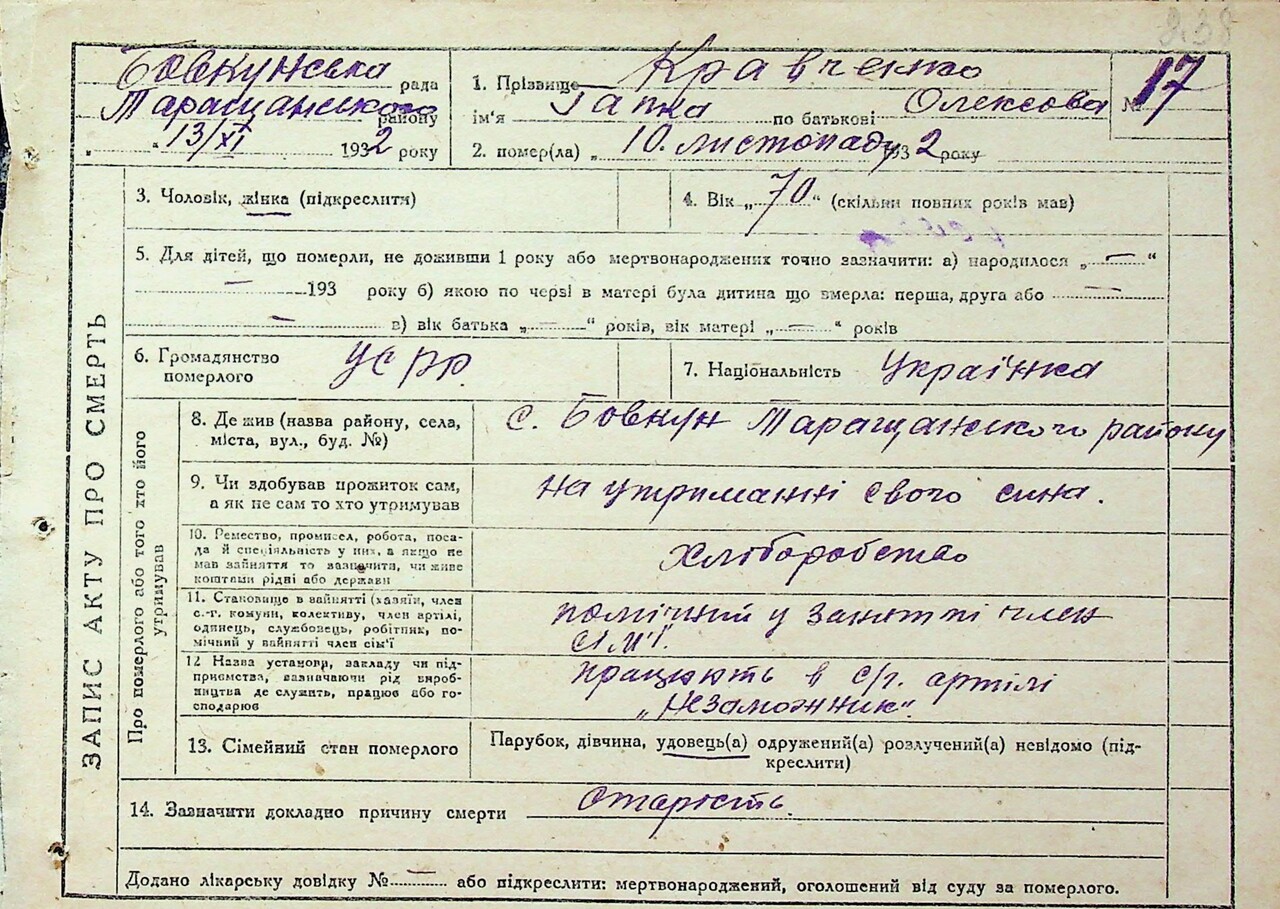 238
Бовкунська рада
Таращанського району
„ “ 13/XI 1932 року
1. Прізвище Кравченко
ім'я Гапка по батькові Олексова
2. помер(ла) „ 10. листопаду 1932 року
№ 17
ЗАПИС АКТУ ПРО СМЕРТЬ
3. Чоловік, жінка (підкреслити)
4. Вік „70“ (скільки повних років мав)
5. Для дітей, що померли, не доживши 1 року або мертвонароджених точно зазначити: а) народилося „ — “
— 193 року б) якою по черзі в матері була дитина що вмерла: перша, друга або —
— в) вік батька „ — “ років, вік матері „ — “ років
6. Громадянство
померлого
УСРР
7. Національність Українка
Про померлого або того хто його
утримував
8. Де жив (назва району, села,
міста, вул., буд. №)
с. Бовкун Таращанського району
9. Чи здобував прожиток сам,
а як не сам то хто утримував
на утриманні свого сина.
10. Ремество, промисел, робота, поса-
да й спеціяльність у них, а якщо не
мав зайняття то зазначити, чи живе
коштами рідні або держави
Хліборобство
11. Становище в зайнятті (хазяїн, член
с.-г. комуни, колективу, член артілі,
одинець, службовець, робітник, по-
мічний у зайнятті член сім'ї
помічний у занятті член
сім'ї.
12 Назва установи, закладу чи під-
приємства, зазначаючи рід вироб-
ництва де служить, працює або го-
сподарює
працюють в с/г. артілі
„Незаможник“.
13. Сімейний стан померлого
Парубок, дівчина, удовець(а) одружений(а) розлучений(а) невідомо (під-
креслити)
14. Зазначити докладно причину смерти Старість.
Додано лікарську довідку № — або підкреслити: мертвонароджений, оголошений від суду за померлого.